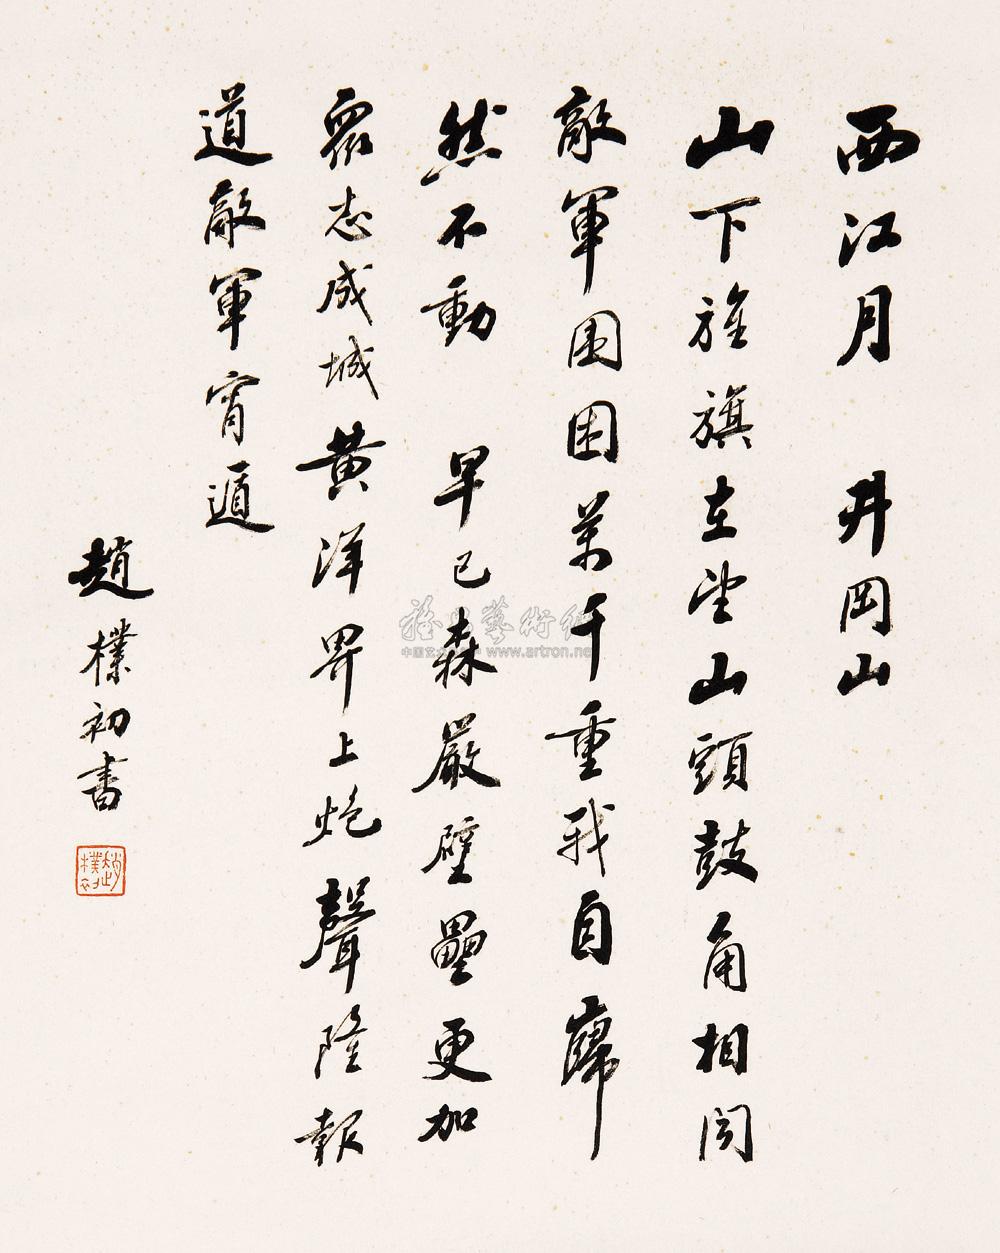 西江月 井岡山
山下旌旗在望山頭鼓角相闻
敵軍围困万千重我自歸
然不動 早已森嚴壁壘更加
眾志成城黄洋界上炮聲隆報
道敵軍宵遁
趙樸初書
趙樸初
中国艺术 www.artron.net